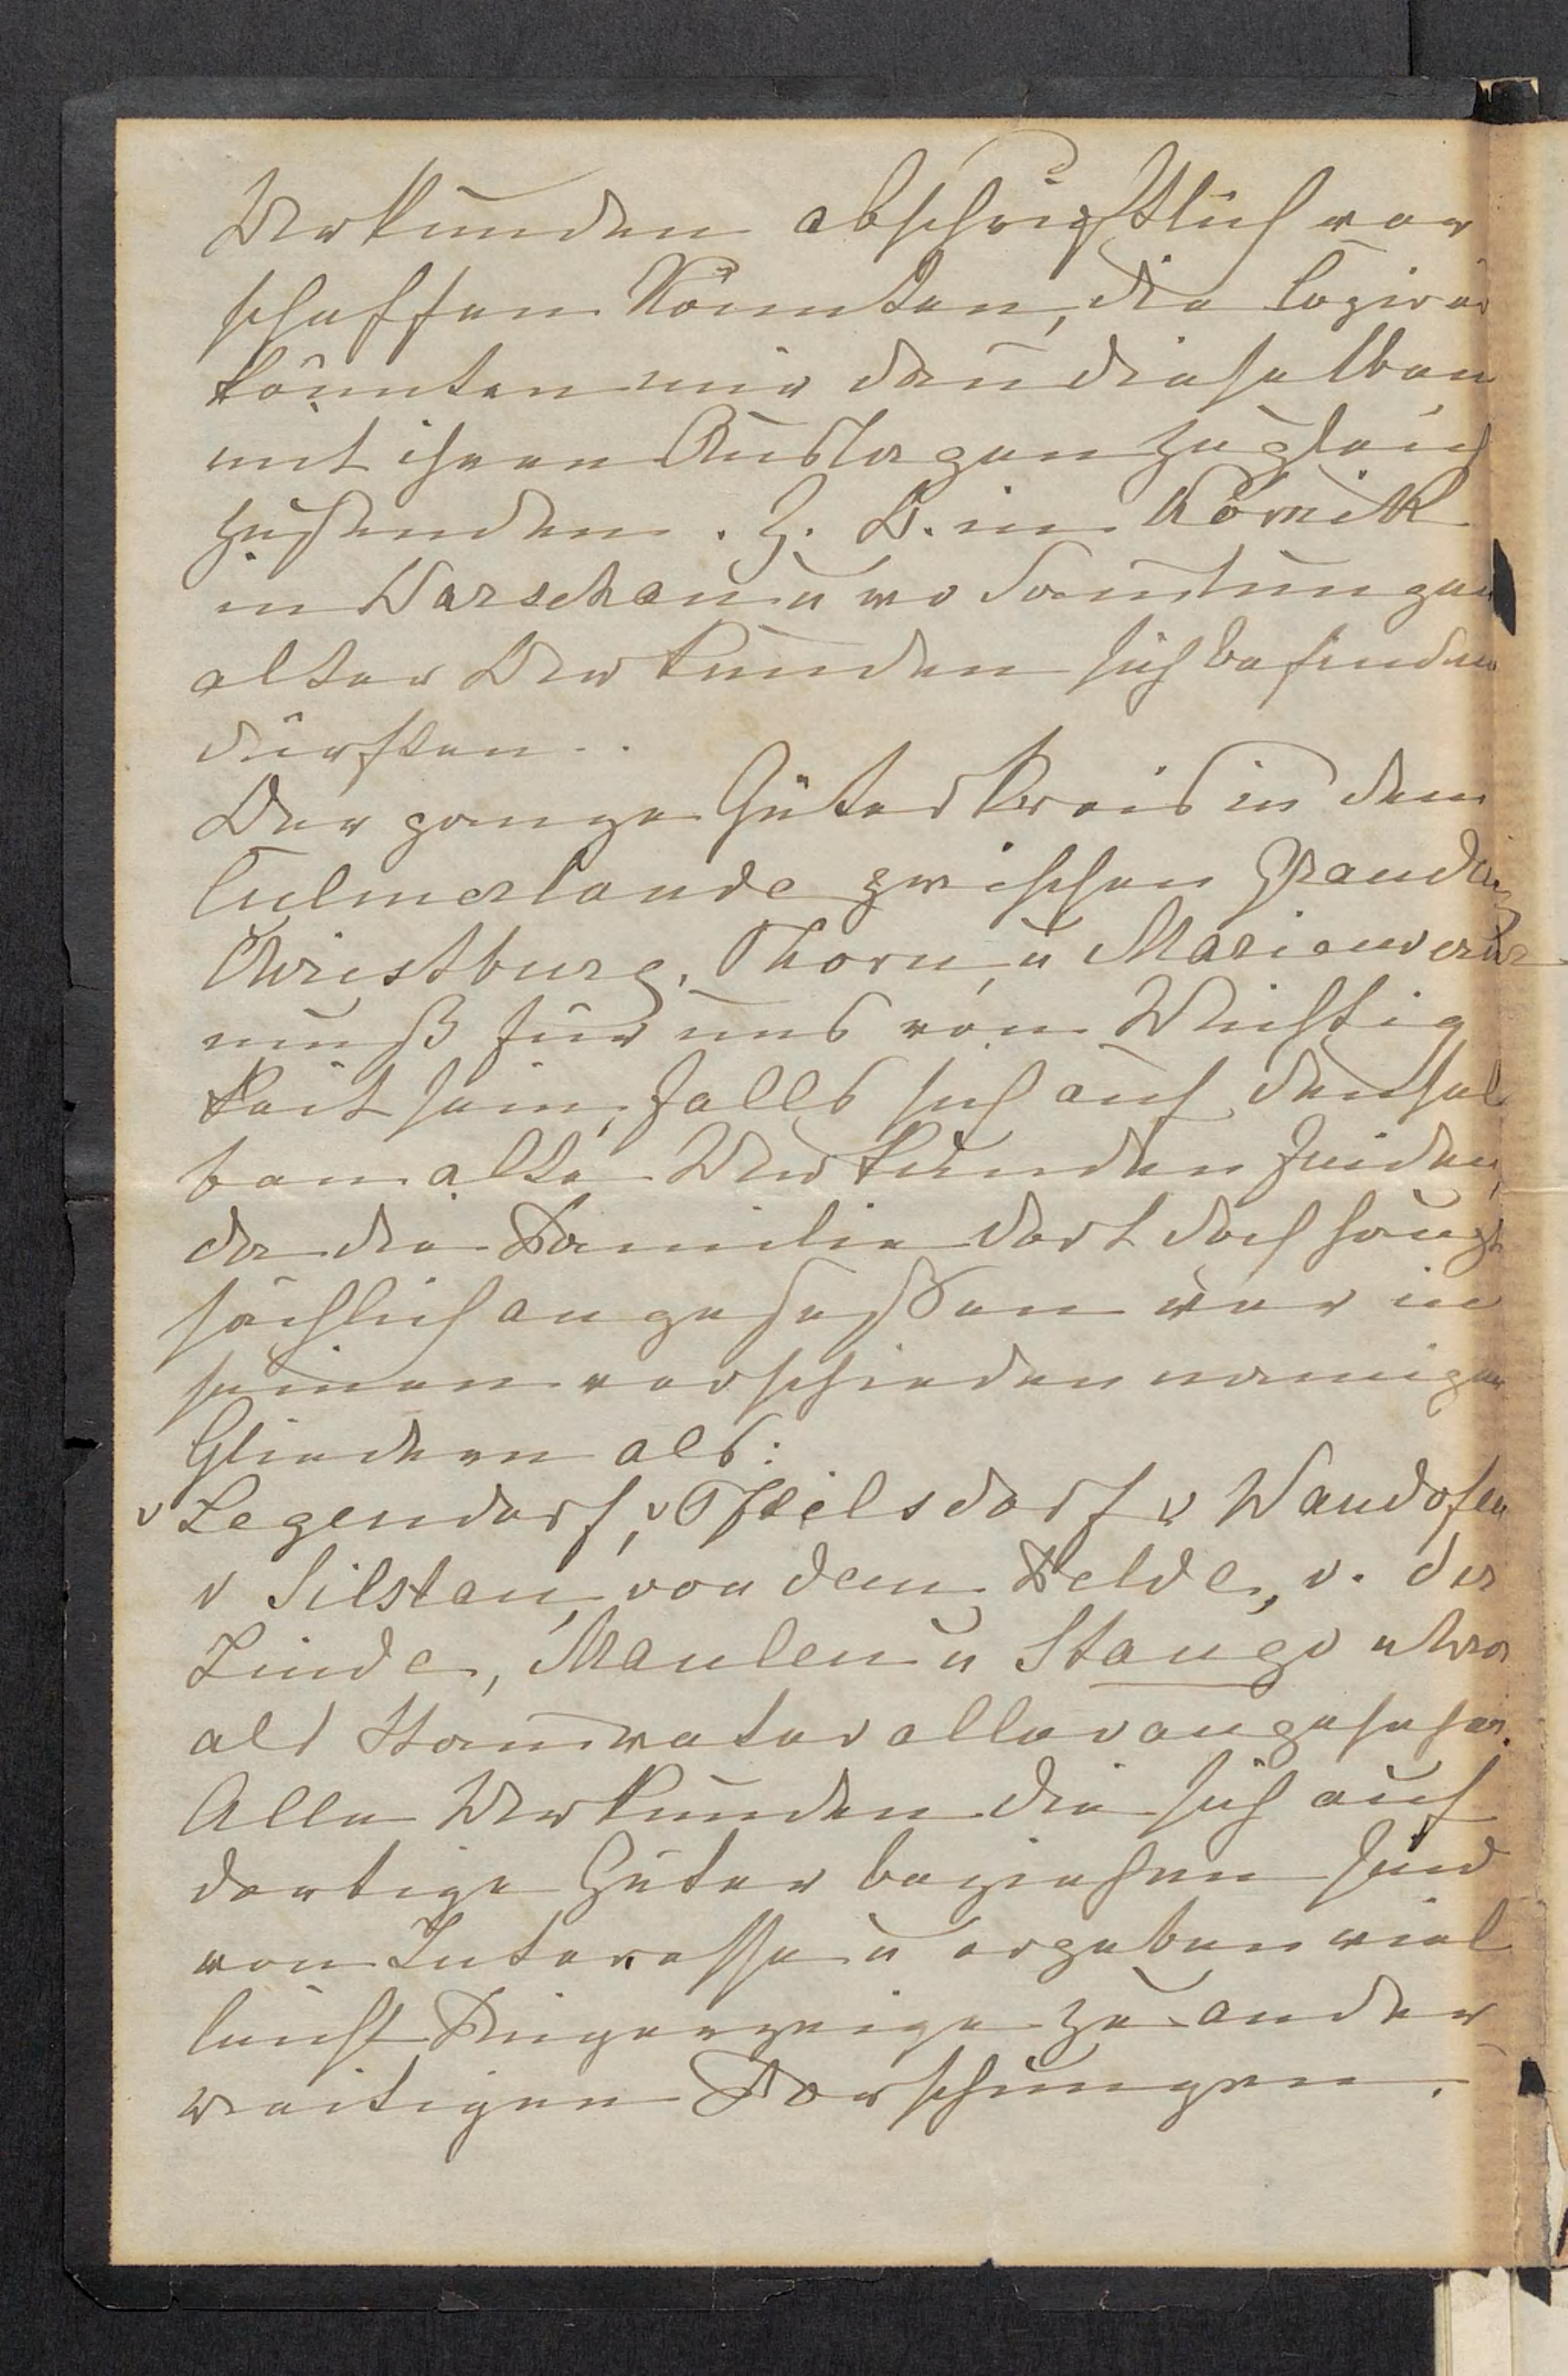 Urkunden abschriftlich ver
schaffen könnten, die Copien
könnten mir dan̄ dieselben
mit ihren Auslagen zugleich
zusenden. Z. B. in Kórnik
in Warschau u wo Sam̄lungen
alter Urkunden sich befinden
dürften..
Der ganze Güterkreis in dem
Culmerlande zwischen Graudenz
Christburg, Thorn, u Marienwerder
muß für uns von Wichtig
keit sein, falls sich auf densel
ben alte Urkunden finden,
da die Familie dort doch haupt
sächlich angesessen war in
seinen verschieden namigen
Gliedern als:
v Legendorf, v Pfeilsdorf v Wandofen
v Silslau, von dem Felde, v. der
Linde, Maulen u Stango
als Stam̄vater aller angesehen.
Alle Urkunden die sich auf
dortige Güter beziehen sind
von Interesse u ergeben viel
leicht Fingerzeige zu ander
weitigen Forschungen.